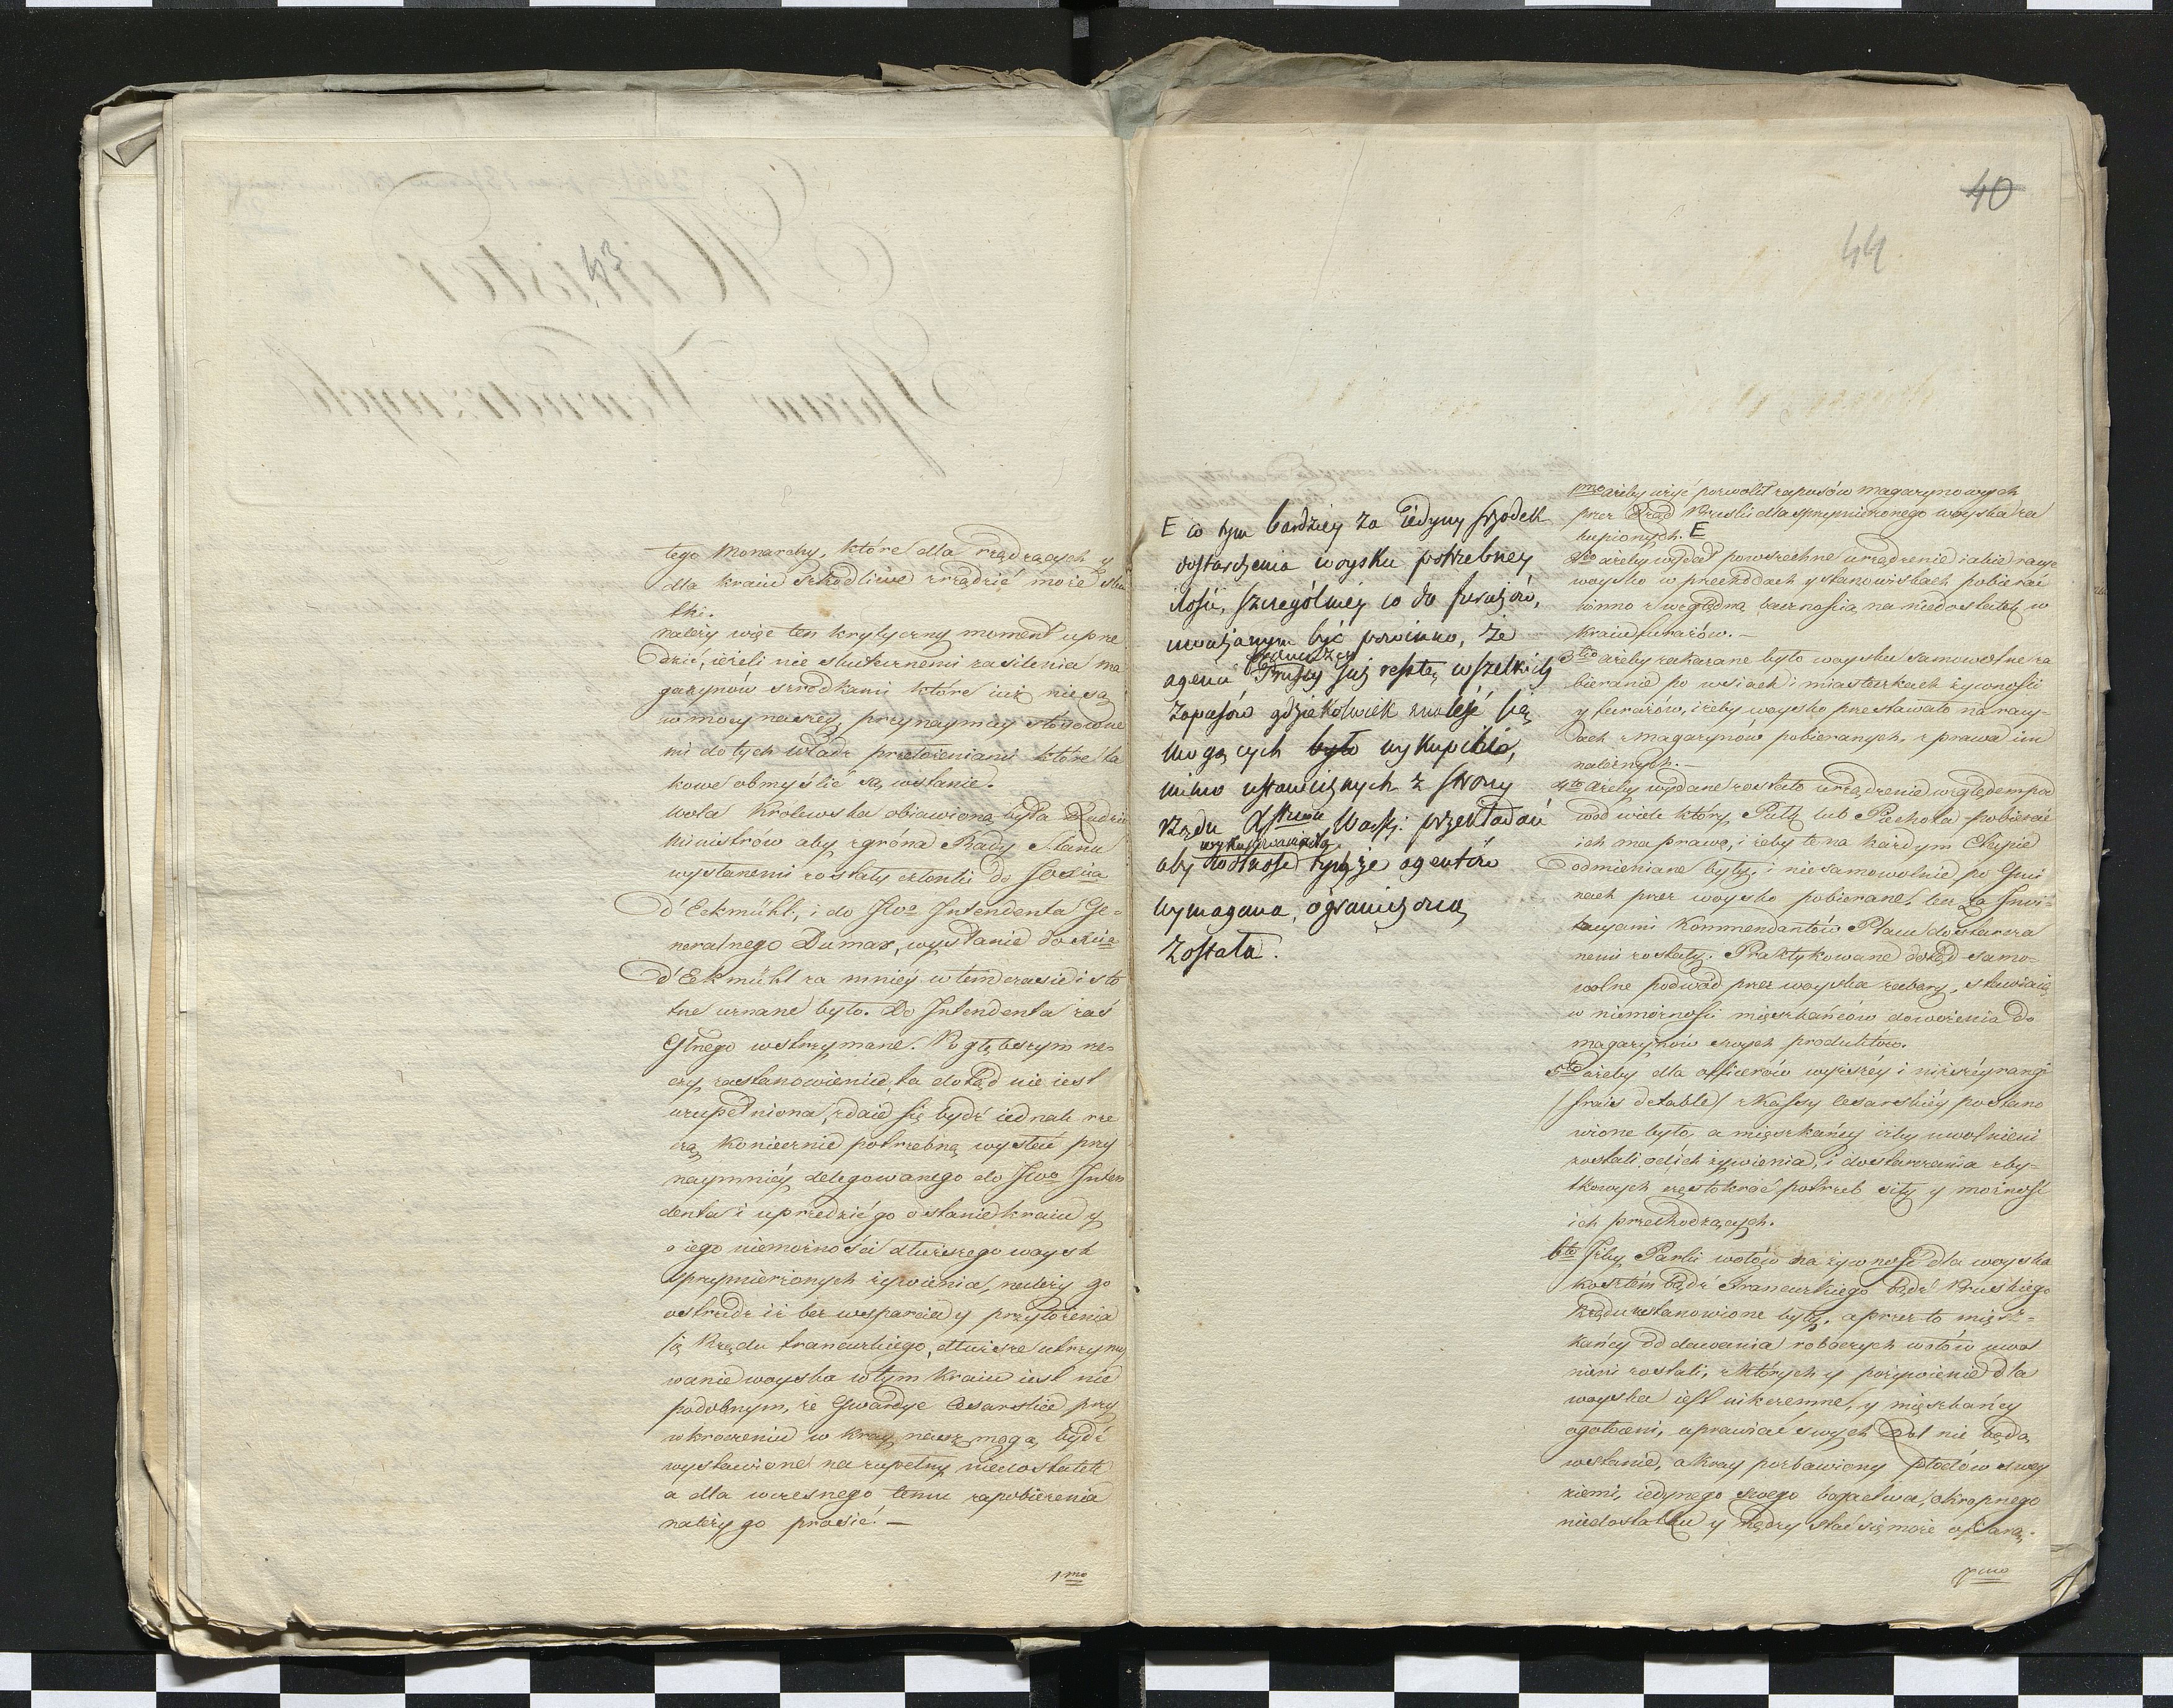 43
tego Monarchy, które dla rządzących y
dla kraiu szkodliwe zrządzić może sku
tki.
należy więc ten krytyczny moment uprze
dzić, ieżeli nie skutecznemi zasilenia ma
gazynów szrodkami które iuż nie są
w mocy naszey, przynaymniey stosowne
mi do tych władz przełożeniami które ta
kowe obmyślić są wstanie.
Wola Krolewska obiawiona była Radzie
Ministrów aby zgróna Rady Stanu
wysłanemi zostały członki do Xcia
d'Eckmühl, i do JWo Intendenta Ge-
neralnego Dumas, wysłanie do Xcia
d'Eckmühl za mniey w tem czasie isto
tne uznane było. Do Intendenta zaś
Głnego wstrzymane. Po głębszym rze
czy zastanowieniu, ta dotąd nie iest
uzupełniona, zdaie się bydź iednak rze
czą koniecznie potrzebną wysłać przy
naymniey delegowanego do JWo Inten
denta i uprzedzić go o stanie kraiu y
o iego niemożności dłuższego woysk
sprzymierzonych żywienia, należy go
ostrzedz iż bez wsparcia y przyłożenia
się Rządu francuzkiego, dłuższe utrzymy
wanie woyska w tym Kraiu iest nie
podobnym, że Gwardye Cesarskie przy
wkroczeniu w Kray nasz mogą bydź
wystawione na zupełny niedostatek
a dla wczesnego temu zapobieżenia
należy go prosić. —
1mo
40
44
E co tym bardziey za iedyny szrodek
dostarczenia woysku potrzebney
ilości, szczególniey co do furażów,
uważanym być powinno, że
agenci Pruscy już resztę wszelkich
zapasów gdziekolwiek znaleść się
mogących było wykupili,
mimo ustawicznych z strony
Rządu Xstwa Warsz: przekładań
aby wolność tychże agentów
wymagana, ograniczoną
została.
1mo ażeby użyć pozwolił zapasów magazynowych
przez Rząd Pruski dla sprzymierzonego woyska za
kupionych. E
2do ażeby wydał powszechne urządzenie iakie racye
woysko w przechodach y stanowiskach pobierać
winno z względną bacznością na niedostatek w
kraiu furażów. —
3tio ażeby zakazane było woysku samowolne za
bieranie po wsiach i miasteczkach żywności
y furażów, i żeby woysko przestawało na racy-
ach z Magazynów pobieranych, z prawa im
należnych. —
4to ażeby wydane zostało urządzenie względem pod
wod wiele który Pułk lub Piechota pobierać
ich ma prawo, i żeby te na każdym Etapie
odmieniane były, i nie samowolnie po Gmi
nach przez woysko pobierane, lecz za Inwi-
tacyami Kommendantów Placu dostarcza
nemi zostały. Praktykowane dotąd samo-
wolne podwód przez woyska zabory, stawiaią
w niemożności mięszkańców dowożenia do
magazynów swych produktów.
5to ażeby dla officerów wyższéy i niższéy rangi
(frais de table) z Kassy Cesarskiéy postano
wione było, a mięszkańcy iżby uwolnieni
zostali od ich żywienia, i dostarczania zby-
tkowych częstokroć potrzeb siły y możność
ich przechodzących.
6to Iżby Parki wołów na żywność dla woyska
kosztem bądź Francuzkiego bądź Pruskiego
Rządu ustanowione były, a przez to mięsz-
kańcy od dawania roboczych wołów uwol
nieni zostali, z których y pożywienie dla
woyska iest nikczemne, y mięszkańcy
ogołoceni, uprawiać swych Pól nie będą
wstanie, a kray pozbawiony płodów swey
ziemi, iedynego swego bogactwa, okropnego
niedostatku y nędzy stać się może ofiarą.
7mo